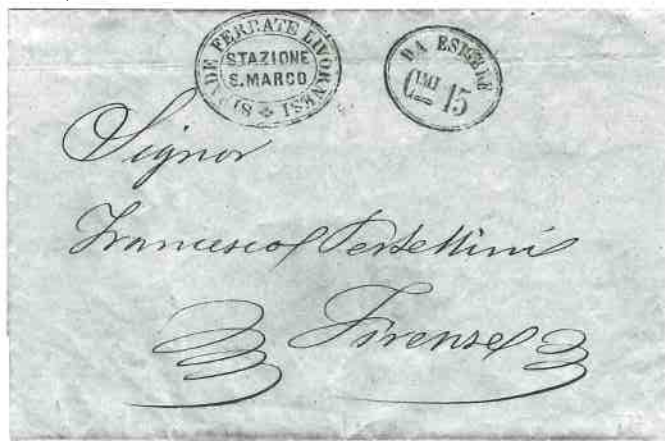 STRADE FERRATE LIVORNESI
STAZIONE
S. MARCO
DA ESIGERE
CMI 15
Signor
Francesco
Firenze